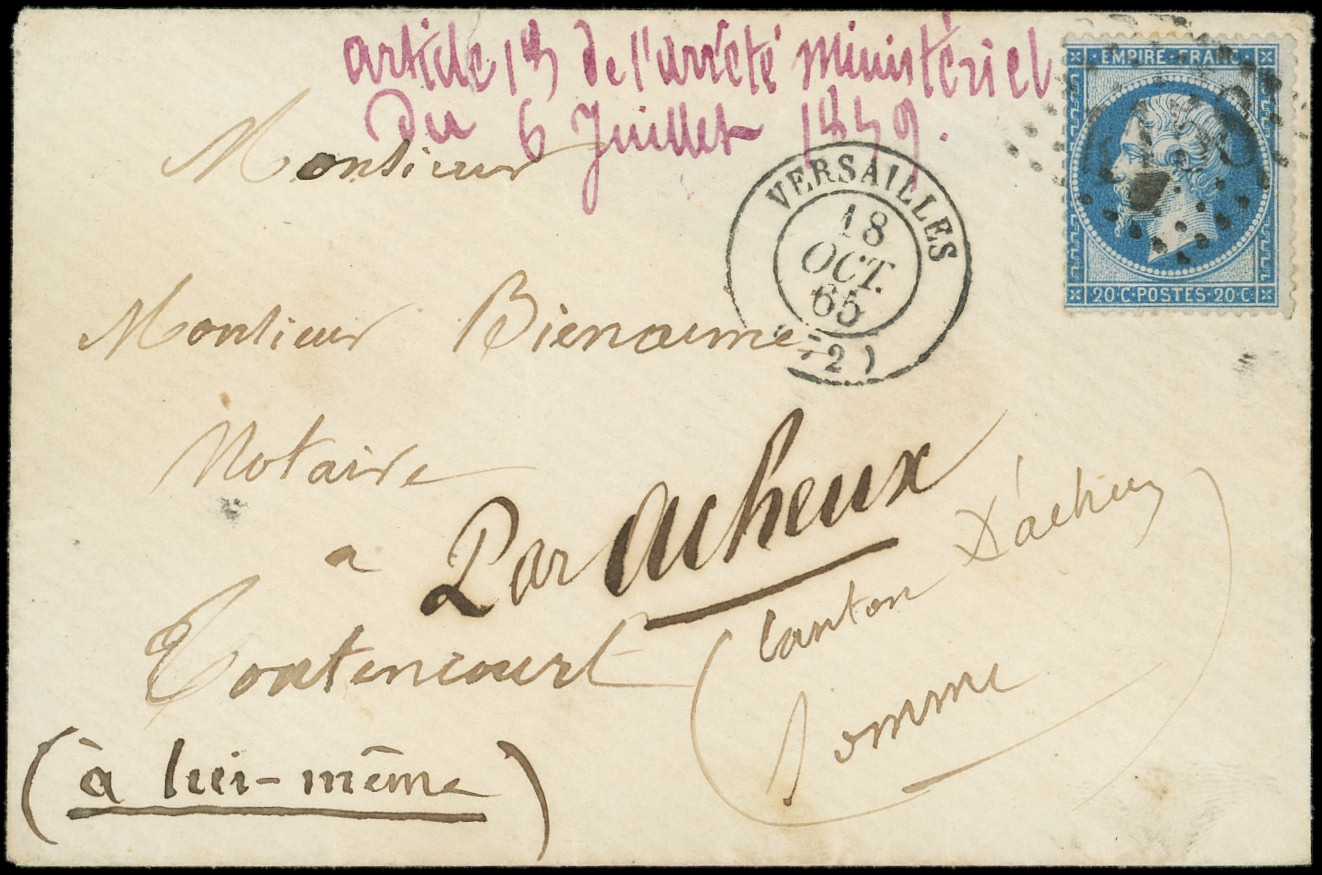 article 13 de l'arrêté ministériel
du 6 Juillet 1859.
EMPIRE FRANC
20·C·POSTES·20·C
VERSAILLES
18
OCT.
65
(72)
Monsieur
Monsieur Bienaime
Notaire
a
Toutencourt
Par Acheux
(Canton D'acheux
Somme)
(à lui-même)